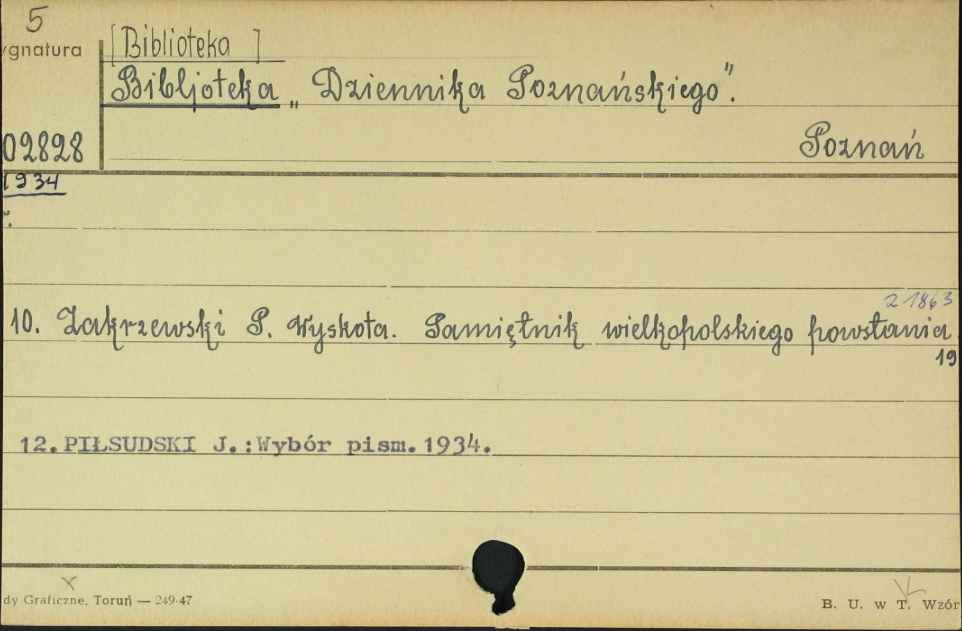 5
ygnatura
[Biblioteka]
Bibljoteka „Dziennika Poznańskiego".
02828
Poznań
1934
z 1863
10. Zakrzewski P. Wyskota. Pamiętnik wielkopolskiego powstania
19
12. PIŁSUDSKI J.:Wybór pism. 1934.
dy Graficzne, Toruń — 249-47
B. U. w T. Wzór